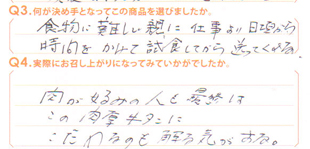 Q3.何が決め手となってこの商品を選びましたか。
食物に難しい親に仕事より日頃から
時間をかけて試食してから送ってくる
Q4.実際にお召し上がりになってみていかがでしたか。
肉が好みの人と
この肉厚牛タンに
こだわるのも解る気がする。